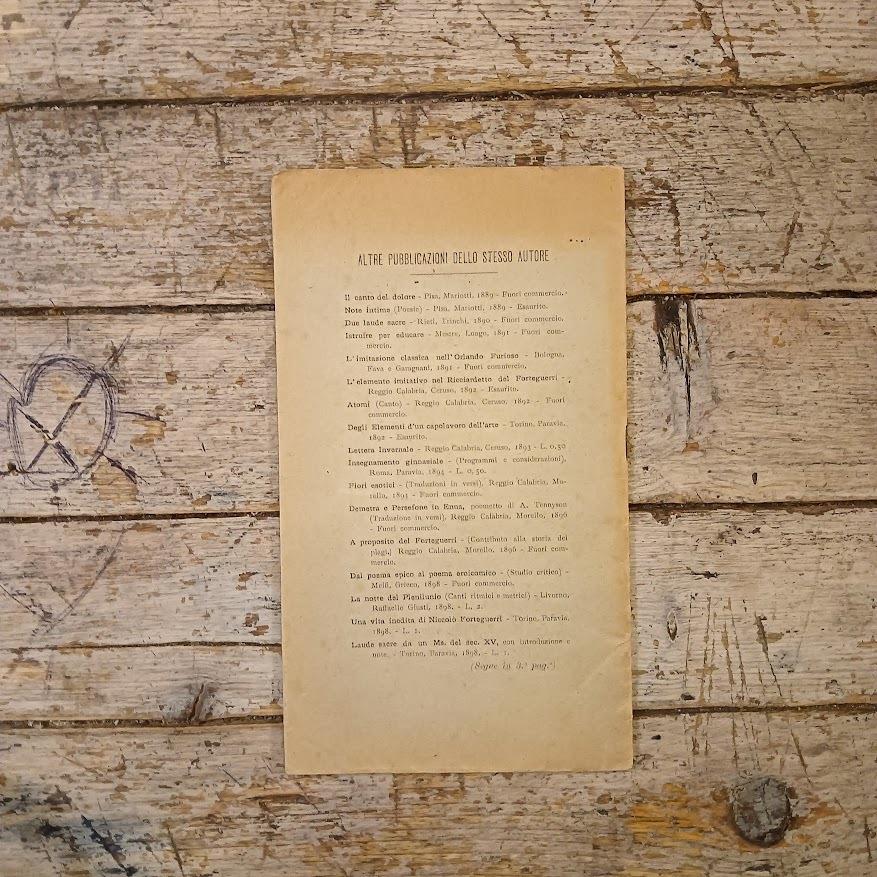 ALTRE PUBBLICAZIONI DELLO STESSO AUTORE
Il canto del dolore - Pisa, Mariotti, 1889 - Fuori commercio.
Note intime (Poesie) - Pisa, Mariotti, 1889 - Esaurito.
Due laude sacre - Rieti, Trinchi, 1890 - Fuori commercio.
Istruire per educare - Mestre, Longo, 1891 - Fuori com-
mercio.
L'imitazione classica nell'Orlando Furioso - Bologna,
Fava e Garagnani, 1891 - Fuori commercio.
L'elemento imitativo nel Ricciardetto del Forteguerri -
Reggio Calabria, Ceruso, 1892 - Esaurito.
Atomi (Canto) - Reggio Calabria, Ceruso, 1892 - Fuori
commercio.
Degli Elementi d'un capolavoro dell'arte - Torino, Paravia,
1892 - Esaurito.
Lettera Invernale - Reggio Calabria, Ceruso, 1893 - L. 0,50
Insegnamento ginnasiale - (Programmi e considerazioni),
Roma, Paravia, 1894 - L. 0,50.
Fiori esotici - (Traduzioni in versi), Reggio Calabria, Mo-
rello, - Fuori commercio.
Demetra e Persefone in Enna, poemetto di A. Tennyson
(Traduzione in versi), Reggio Calabria, Morello, 1896
- Fuori commercio.
A proposito del Forteguerri - (Contributo alla storia dei
plagi.) Reggio Calabria, Morello, 1896 - Fuori com-
mercio.
Dal poema epico al poema eroicomico - (Studio critico) -
Melfi, Grieco, 1898 - Fuori commercio.
La notte del Plenilunio (Canti ritmici e metrici) - Livorno,
Raffaello Giusti, 1898. - L. 2.
Una vita inedita di Niccolò Forteguerri - Torino, Paravia,
1898. - L. 1.
Laude sacre da un Ms. del sec. XV, con introduzione e
note. - Torino, Paravia, 1898. - L. 1.
(Segue in 3.ª pag.ª)